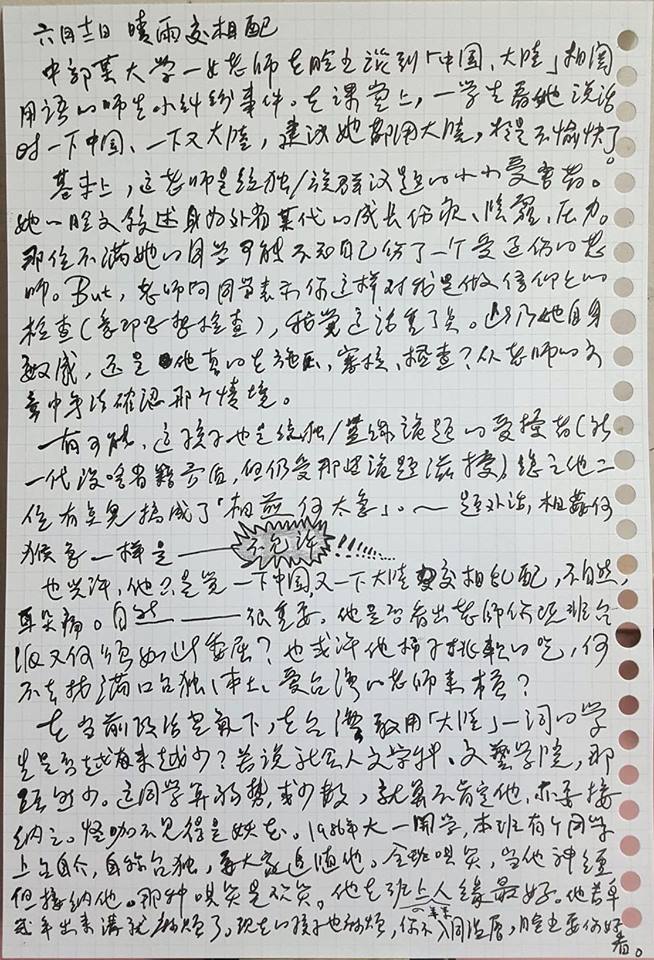 六月十二日 晴雨交相配
中部某大学一女老师在脸书谈到「中国、大陆」相関
用语的师生小纠纷事件。在课堂上，一学生看她说话
时一下中国、一下又大陆，建议她都用大陆，於是不愉快了。
基本上，这老师是统独/族群议题的小小受害者。
她一脸文叙述身为外省某代的成长伤痕、阴霾、压力。
那位不满她的同学可能不知自己伤了一个受过伤的老
师。But，老师问同学表示你这样对我是做信仰上的
检查（意即思想检查），我觉这话重了矣。此乃她自身
敏感，还是他真的在施压、审核、检查？从老师的文
章中无法確認那个情境。
有可能，这孩子也是统独/蓝绿议题的受扰者（新
一代没啥省籍 ，但仍受那些话题滋扰），总之他二
位有意见搞成了「相煎何太急」。～ 题外话，相煎何
猴急一样是——不允许!!!!......
也或许，他只是觉一下中国，又一下大陆交相乱配，不自然，
耳朵痛。自然——很重要。他是否看出老师你既非台
派又何须如此委屈？也或许他柿子挑软的吃，何
不去找满口台独、本土、爱台湾的老师来槓？
在当前政治空氣下，在台湾敢用「大陆」一词的学
生是否越来越少？若说社会人文学科、文艺学院，那
更少。这同学算弱势，或少数，就算不肯定他，亦要接
纳之。怪咖不见得是妖志。1986年大一開学，本班有个同学
上台自介，自称台独，要大家追随他。全班哄笑，当他神经
但接纳他。那种哄笑是欢笑。他在班上人缘最好。他若早
几年出来讲就麻烦了。现在的孩子也麻烦，你不入同温层，脸书要你好
看。